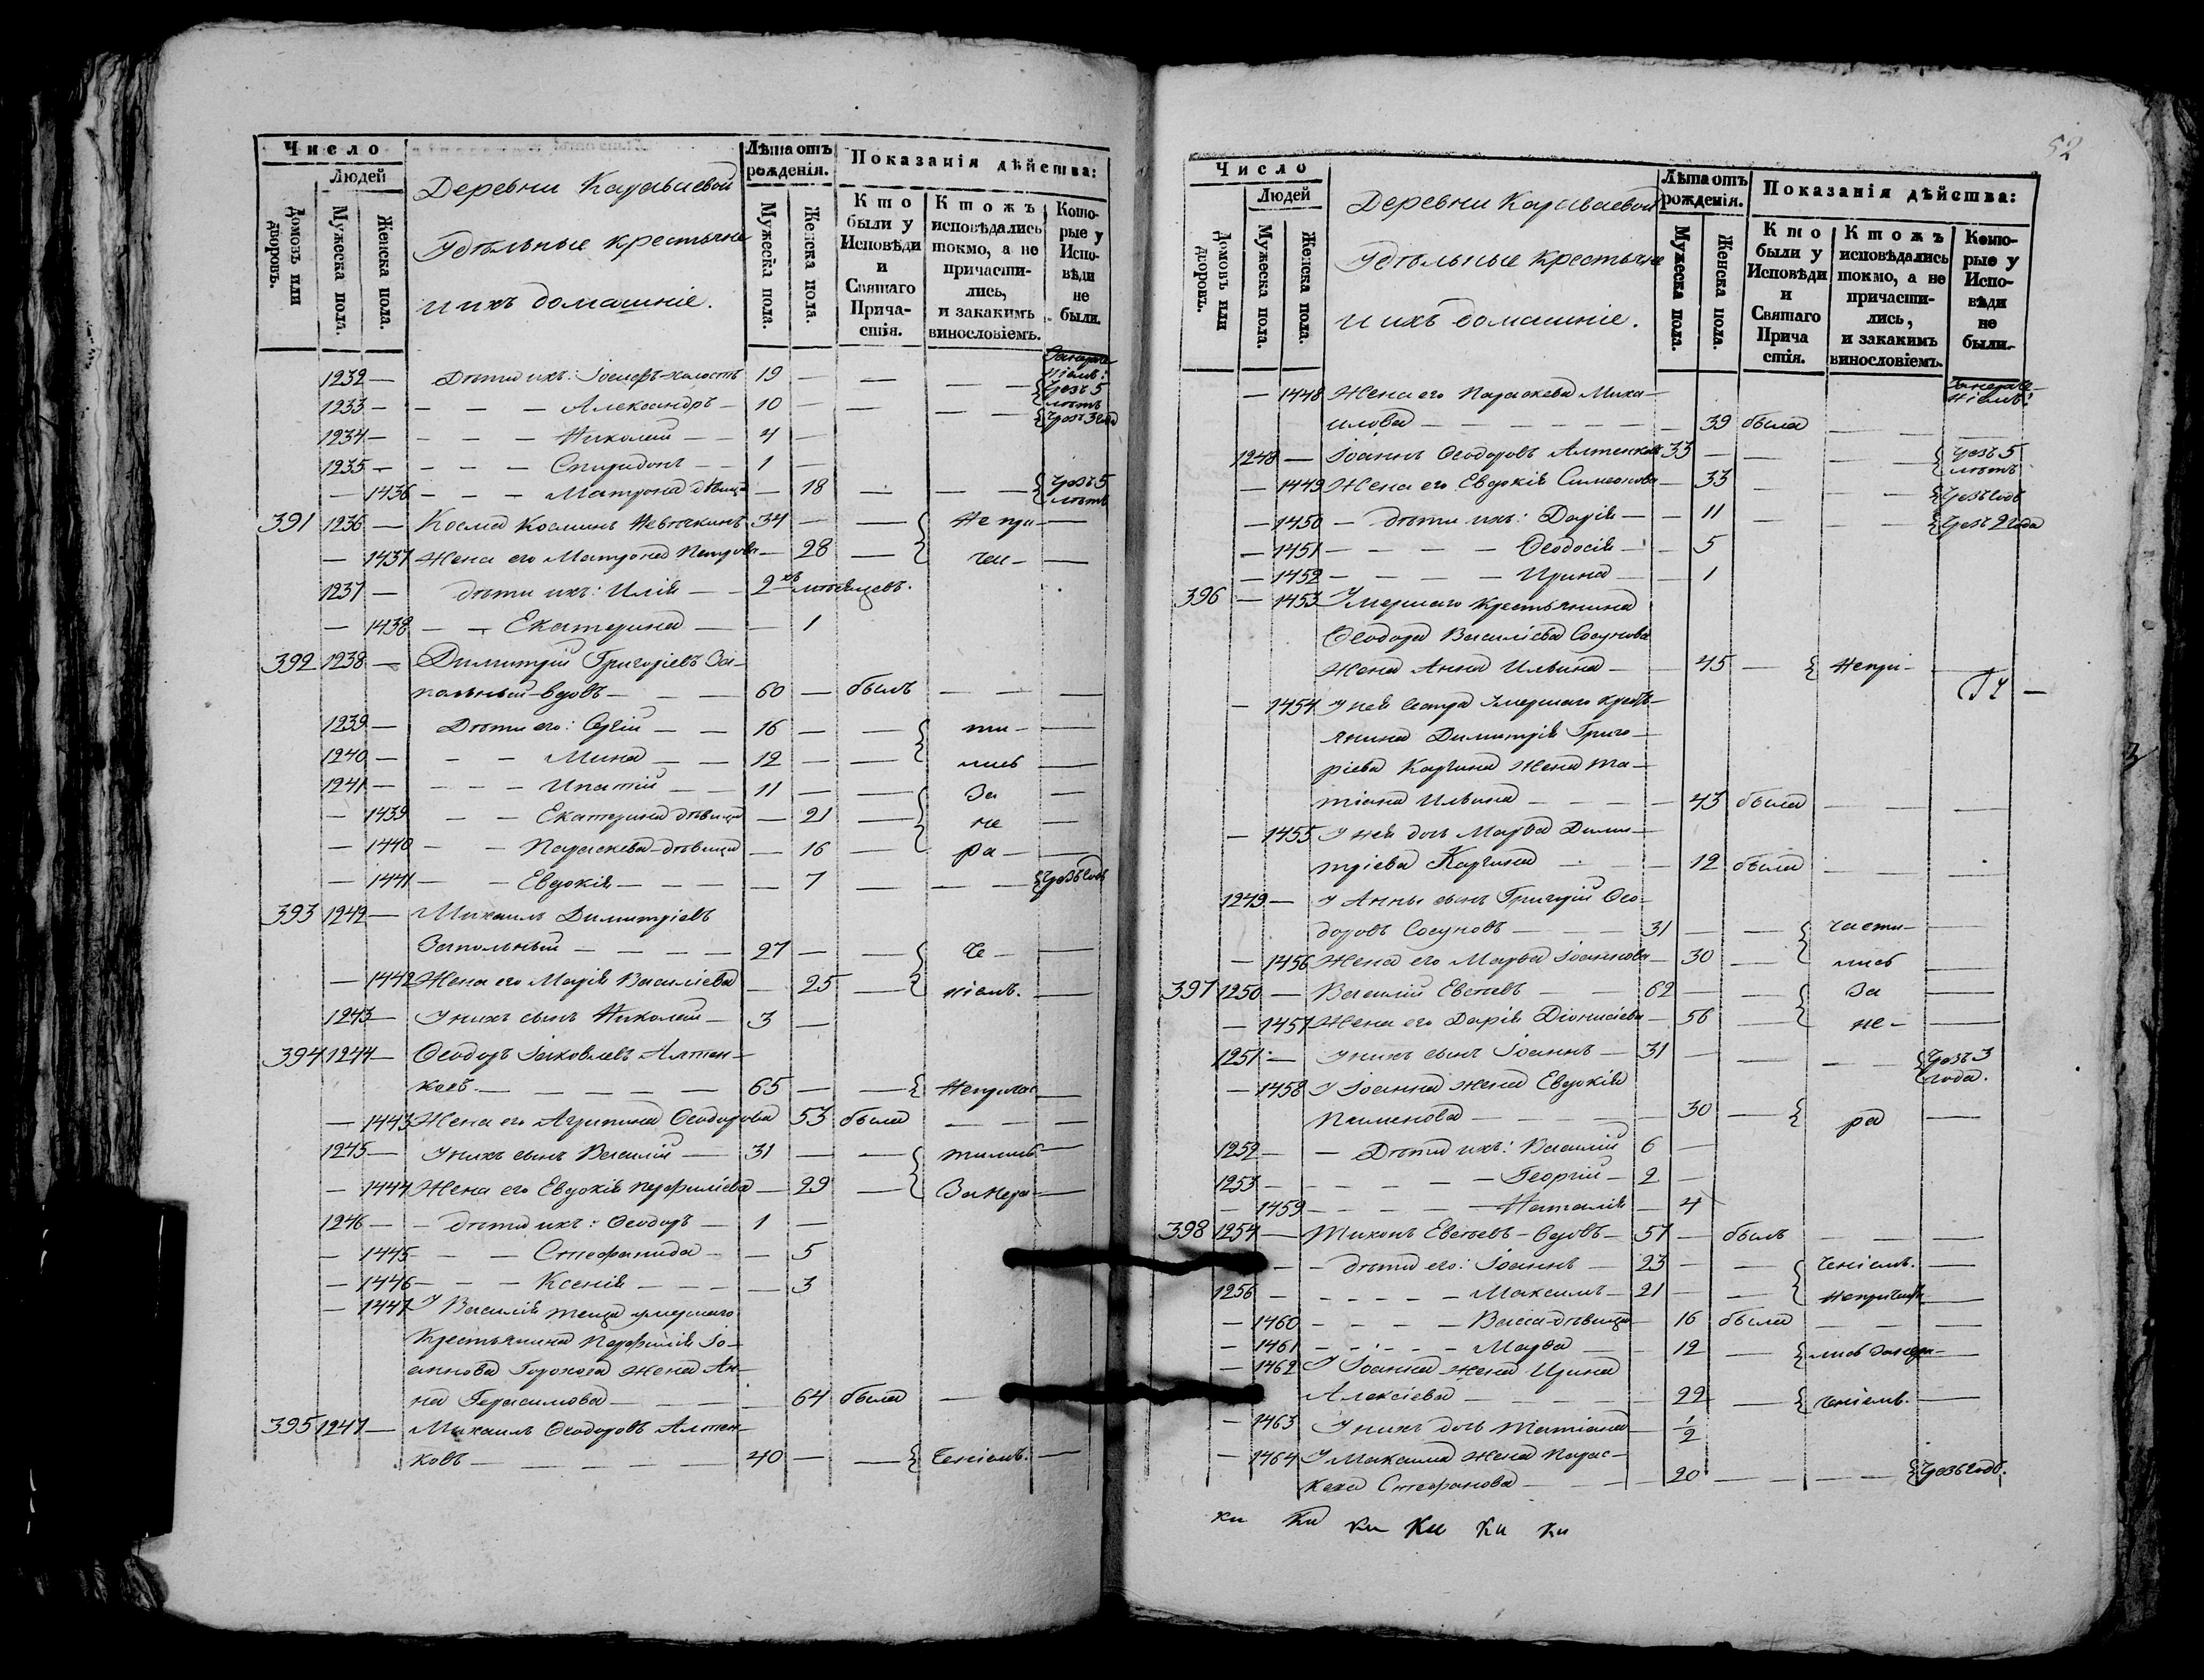 Число
Людей
Домовъ или дворовъ.
Мужеска пола.
Женска пола.
Деревни Караваевой
Удѣльные крестьяне
и ихъ домашніе.
Лѣта отъ рожденія.
Мужеска пола.
Женска пола.
Показанія дѣйства:
Кто были у Исповѣди и Святаго Причастія.
Ктожъ исповѣдались токмо, а не причастились, и закакимъ винословіемъ.
Которые у Исповѣди не были.
1232 — Дѣти ихъ: Іосифъ-холостъ 19 — — — — чрезъ 5 лѣтъ
1233 — — — — Александръ — 10 — — — — чрезъ 3 года
1234 — — — — Николай — — 4 —
1235 — — — — Спиридонъ — — 1 —
— 1436 — — — Матрона дѣвица — 18 — — — чрезъ 5 лѣтъ
391 1236 — Косма Косминъ 34 — — Не при- —
— 1437 Жена его Матрона Петрова — 28 — чи- —
1237 — дѣти ихъ: Илія — — 2хъ мѣсяцевъ.
— 1438 — — Екатерина — — 1
392 1238 — Димитрій Григоріевъ За-
польный-вдовъ — — — 60 — былъ — — —
1239 — Дѣти его: Сергій — — 16 — — сти- —
1240 — — — Мина — — 12 — — лись —
1241 — — — — Ипатій — — 11 — — За —
— 1439 — — Екатерина дѣвица — 21 — не —
— 1440 — — Параскева-дѣвица — 16 — ра — —
— 1441 — — Евдокія — — — — 7 — — — чрезъ годъ
393 1242 — Михаилъ Димитріевъ
Запольный — — — — 27 — — че- —
— 1442 Жена его Марія Василіева — 25 — ніемъ. —
1243 — У нихъ сынъ Николай — 3 —
394 1244 — Ѳеодоръ Іаковлевъ Алтен-
ковъ — — — — — 65 — — Неприча- —
— 1443 Жена его Агрипина Ѳеодорова 53 была — — —
1245 — У нихъ сынъ Василій — 31 — — стились —
— 1444 Жена его Евдокія Перфиліева — 29 — Занера- —
1246 — — дѣти ихъ: Ѳеодоръ — 1 —
— 1445 — — Стефанида — — 5
— 1446 — — — Ксенія — — — — 3
— 1447 У Василія теща умершаго
Крестьянина Перфилія Іо-
аннова жена Ан-
на Герасимова — — — — 64 была —
395 1247 — Михаилъ Ѳеодоровъ Алтен-
ковъ — — — — — 40 — — ченіемъ. —
52
Число
Людей
Домовъ или дворовъ.
Мужеска пола.
Женска пола.
Деревни Караваевой
Удѣльные Крестьяне
и ихъ домашніе.
Лѣта отъ рожденія.
Мужеска пола.
Женска пола.
Показанія дѣйства:
Кто были у Исповѣди и Святаго Прича стія.
Ктожъ исповѣдались токмо, а не причастились, и закакимъ винословіемъ.
Которые у Исповѣди не были.
— 1448 Жена его Параскева Миха-
илова — — — — — — — 39 была — — —
1248 — Іоаннъ Ѳеодоровъ Алтенковъ 33 — — — — чрезъ 5 лѣтъ
— 1449 Жена его Евдокія Симеонова — 33 — — — чрезъ годъ
— 1450 — дѣти ихъ: Дарія — — 11 — — — чрезъ 2 года
— 1451 — — — — Ѳеодосія — — 5
— 1452 — — — — Ирина — — 1
396 — 1453 Умершаго Крестьянина
Ѳеодора Василіева Сосунова
Жена Анна Ильина — — 45 — Непри- —
— 1454 У нея сестра умершаго крестьянина Димитрія Григо-
ріева Каргина Жена Та-
тіана Ильина — — — — 43 была — — —
— 1455 У нея дочь Марѳа Дими-
тріева Каргина — — — 12 была — — —
1249 — У Анны сынъ Григорій Ѳео-
доровъ Сосуновъ — — — 31 — — части- —
— 1456 Жена его Марѳа Іоаннова — 30 — лись —
397 1250 — Василій Евстевъ — — 62 — — За —
— 1457 Жена его Дарія Діонисіева — 56 — не- —
1251 — У нихъ сынъ Іоаннъ — 31 — — — — чрезъ 3 года.
— 1458 У Іоанна жена Евдокія
Пименова — — — — — 30 — ра —
1252 — — Дѣти ихъ: Василій 6 —
1253 — — — — — — Георгій — 2 —
— 1459 — — — — — Наталія — 4
398 1254 — Тихонъ Евстевъ-вдовъ — 57 — былъ — — —
— — дѣти его: Іоаннъ — 23 — — ченіемъ. —
1256 — — — — — — Максимъ — 21 — — Непричасти- —
— 1460 — — — — Васса-дѣвица — 16 была — — —
— 1461 — — — — — Марѳа — — 12 — лись занера- —
— 1462 У Іоанна жена Ирина
Алексіева — — — — — 22 — ченіемъ. —
— 1463 У нихъ дочь Татіана — 1/2
— 1464 У Максима жена Парас-
кева Стефанова — — — 20 — — — чрезъ годъ.
ки ки ки ки ки ки